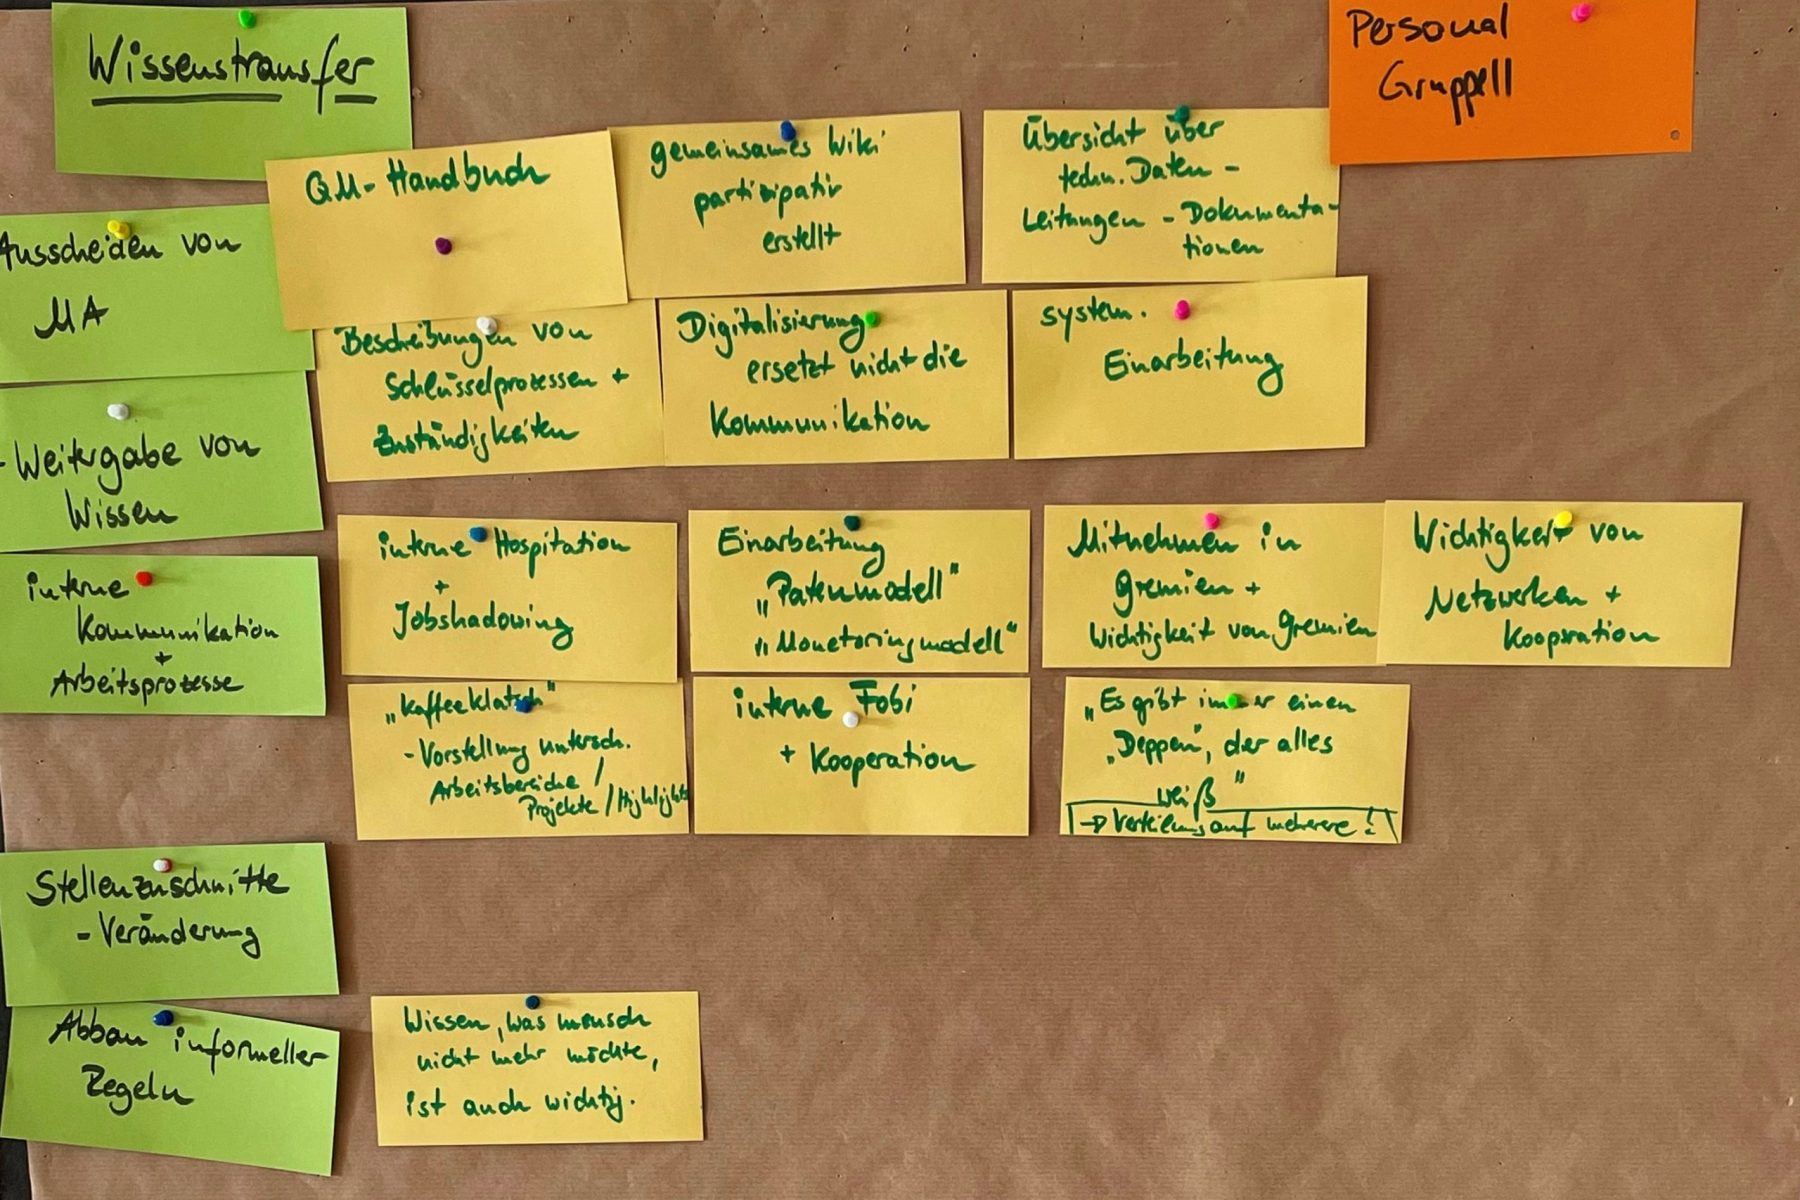 Wissenstransfer
Personal
Gruppe II
QM-Handbuch
gemeinsames Wiki
partizipativ
erstellt
Übersicht über
techn. Daten -
Leitungen - Dokumenta-
tionen
Ausscheiden von
MA
Beschreibungen von
Schlüsselprozessen +
Zuständigkeiten
Digitalisierung
ersetzt nicht die
Kommunikation
system.
Einarbeitung
- Weitergabe von
Wissen
interne
Kommunikation
+
Arbeitsprozesse
interne Hospitation
+
Jobshadowing
Einarbeitung
„Patenmodell"
„Monetoringmodell"
Mitnehmen in
Gremien +
Wichtigkeit von Gremien
Wichtigkeit von
Netzwerken +
Kooperation
„Kaffeeklatsch"
- Vorstellung untersch.
Arbeitsbereiche /
Projekte / Highlights
interne Fobi
+ Kooperation
„Es gibt immer einen
„Deppen", der alles
weiß"
→ Verteilung auf mehrere!
Stellenzuschnitte
- Veränderung
Abbau informeller
Regeln
Wissen, was mensch
nicht mehr möchte,
ist auch wichtig.